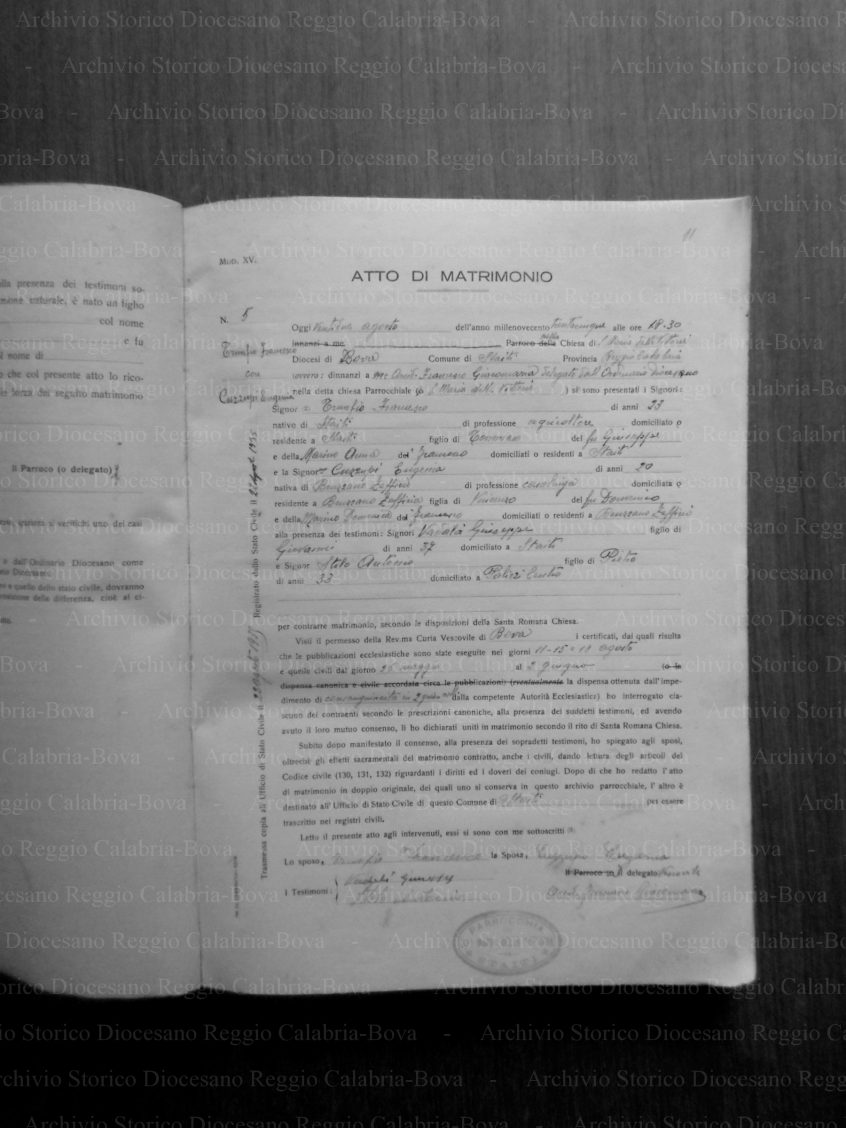 Archivio Storico Diocesano Reggio Calabria-Bova
11
MOD. XV.
ATTO DI MATRIMONIO
N. 5
Trunfio Francesco
con
Cuzzupi Eugenia
Oggi ventidue agosto dell'anno millenovecento trentacinque alle ore 18.30
innanzi a me Parroco della Chiesa di S. Maria della Vittoria
Diocesi di Bova Comune di Staiti Provincia Reggio Calabria
ovvero: dinnanzi a me Francesco delegato dall'Ordinario Diocesano
nella detta chiesa Parrocchiale (o S. Maria della Vittoria) si sono presentati i Signori:
Signor Trunfio Francesco di anni 23
nativo di Staiti di professione agricoltore domiciliato o
residente a Staiti figlio di del fu Giuseppe
e della Marino Anna del Francesco domiciliati o residenti a Staiti
e la Signor Cuzzupi Eugenia di anni 20
nativa di Bruzzano Zeffirio di professione casalinga domiciliata o
residente a Bruzzano Zeffirio figlia di Vincenzo del fu Domenico
e della Marino Domenica del Francesco domiciliati o residenti a Bruzzano Zeffirio
alla presenza dei testimoni: Signori Vadalà Giuseppe figlio di
Giovanni di anni 37 domiciliato a Staiti
e Signor Stelo Antonio figlio di Pietro
di anni 33 domiciliato a
per contrarre matrimonio, secondo le disposizioni della Santa Romana Chiesa.
Visti il permesso della Rev.ma Curia Vescovile di Bova i certificati, dai quali risulta
che le pubblicazioni ecclesiastiche sono state eseguite nei giorni 11-15-18 agosto
e quelle civili dal giorno 26 maggio al 2 giugno (o la
dispensa canonica e civile accordata circa le pubblicazioni) (eventualmente la dispensa ottenuta dall'impe-
dimento di consanguineità in 2 grado dalla competente Autorità Ecclesiastica) ho interrogato cia-
scuno dei contraenti secondo le prescrizioni canoniche, alla presenza dei suddetti testimoni, ed avendo
avuto il loro mutuo consenso, li ho dichiarati uniti in matrimonio secondo il rito di Santa Romana Chiesa.
Subito dopo manifestato il consenso, alla presenza dei sopradetti testimoni, ho spiegato agli sposi,
oltreciò gli effetti sacramentali del matrimonio contratto, anche i civili, dando lettura degli articoli del
Codice civile (130, 131, 132) riguardanti i diritti ed i doveri dei coniugi. Dopo di che ho redatto l'atto
di matrimonio in doppio originale, dei quali uno si conserva in questo archivio parrocchiale, l'altro è
destinato all'Ufficio di Stato Civile di questo Comune di Staiti per essere
trascritto nei registri civili.
Letto il presente atto agli intervenuti, essi si sono con me sottoscritti
Lo sposo, Trunfio Francesco la Sposa, Cuzzupi Eugenia
Il Parroco in il delegato
I Testimoni: Vadalà Giuseppe
Stelo Antonio
PARROCCHIA
STAITI
Trasmessa copia all'Ufficio di Stato Civile il 22 agosto 1935 Registrato dallo Stato Civile il agosto 1935
alla presenza dei testimoni so-
unione naturale, è nato un figlio
col nome
e fu
l nome di
o che col presente atto lo rico-
Il Parroco (o delegato)
quando si verifichi uno dei casi
e dall'Ordinario Diocesano come
a e quello dello stato civile, dovranno